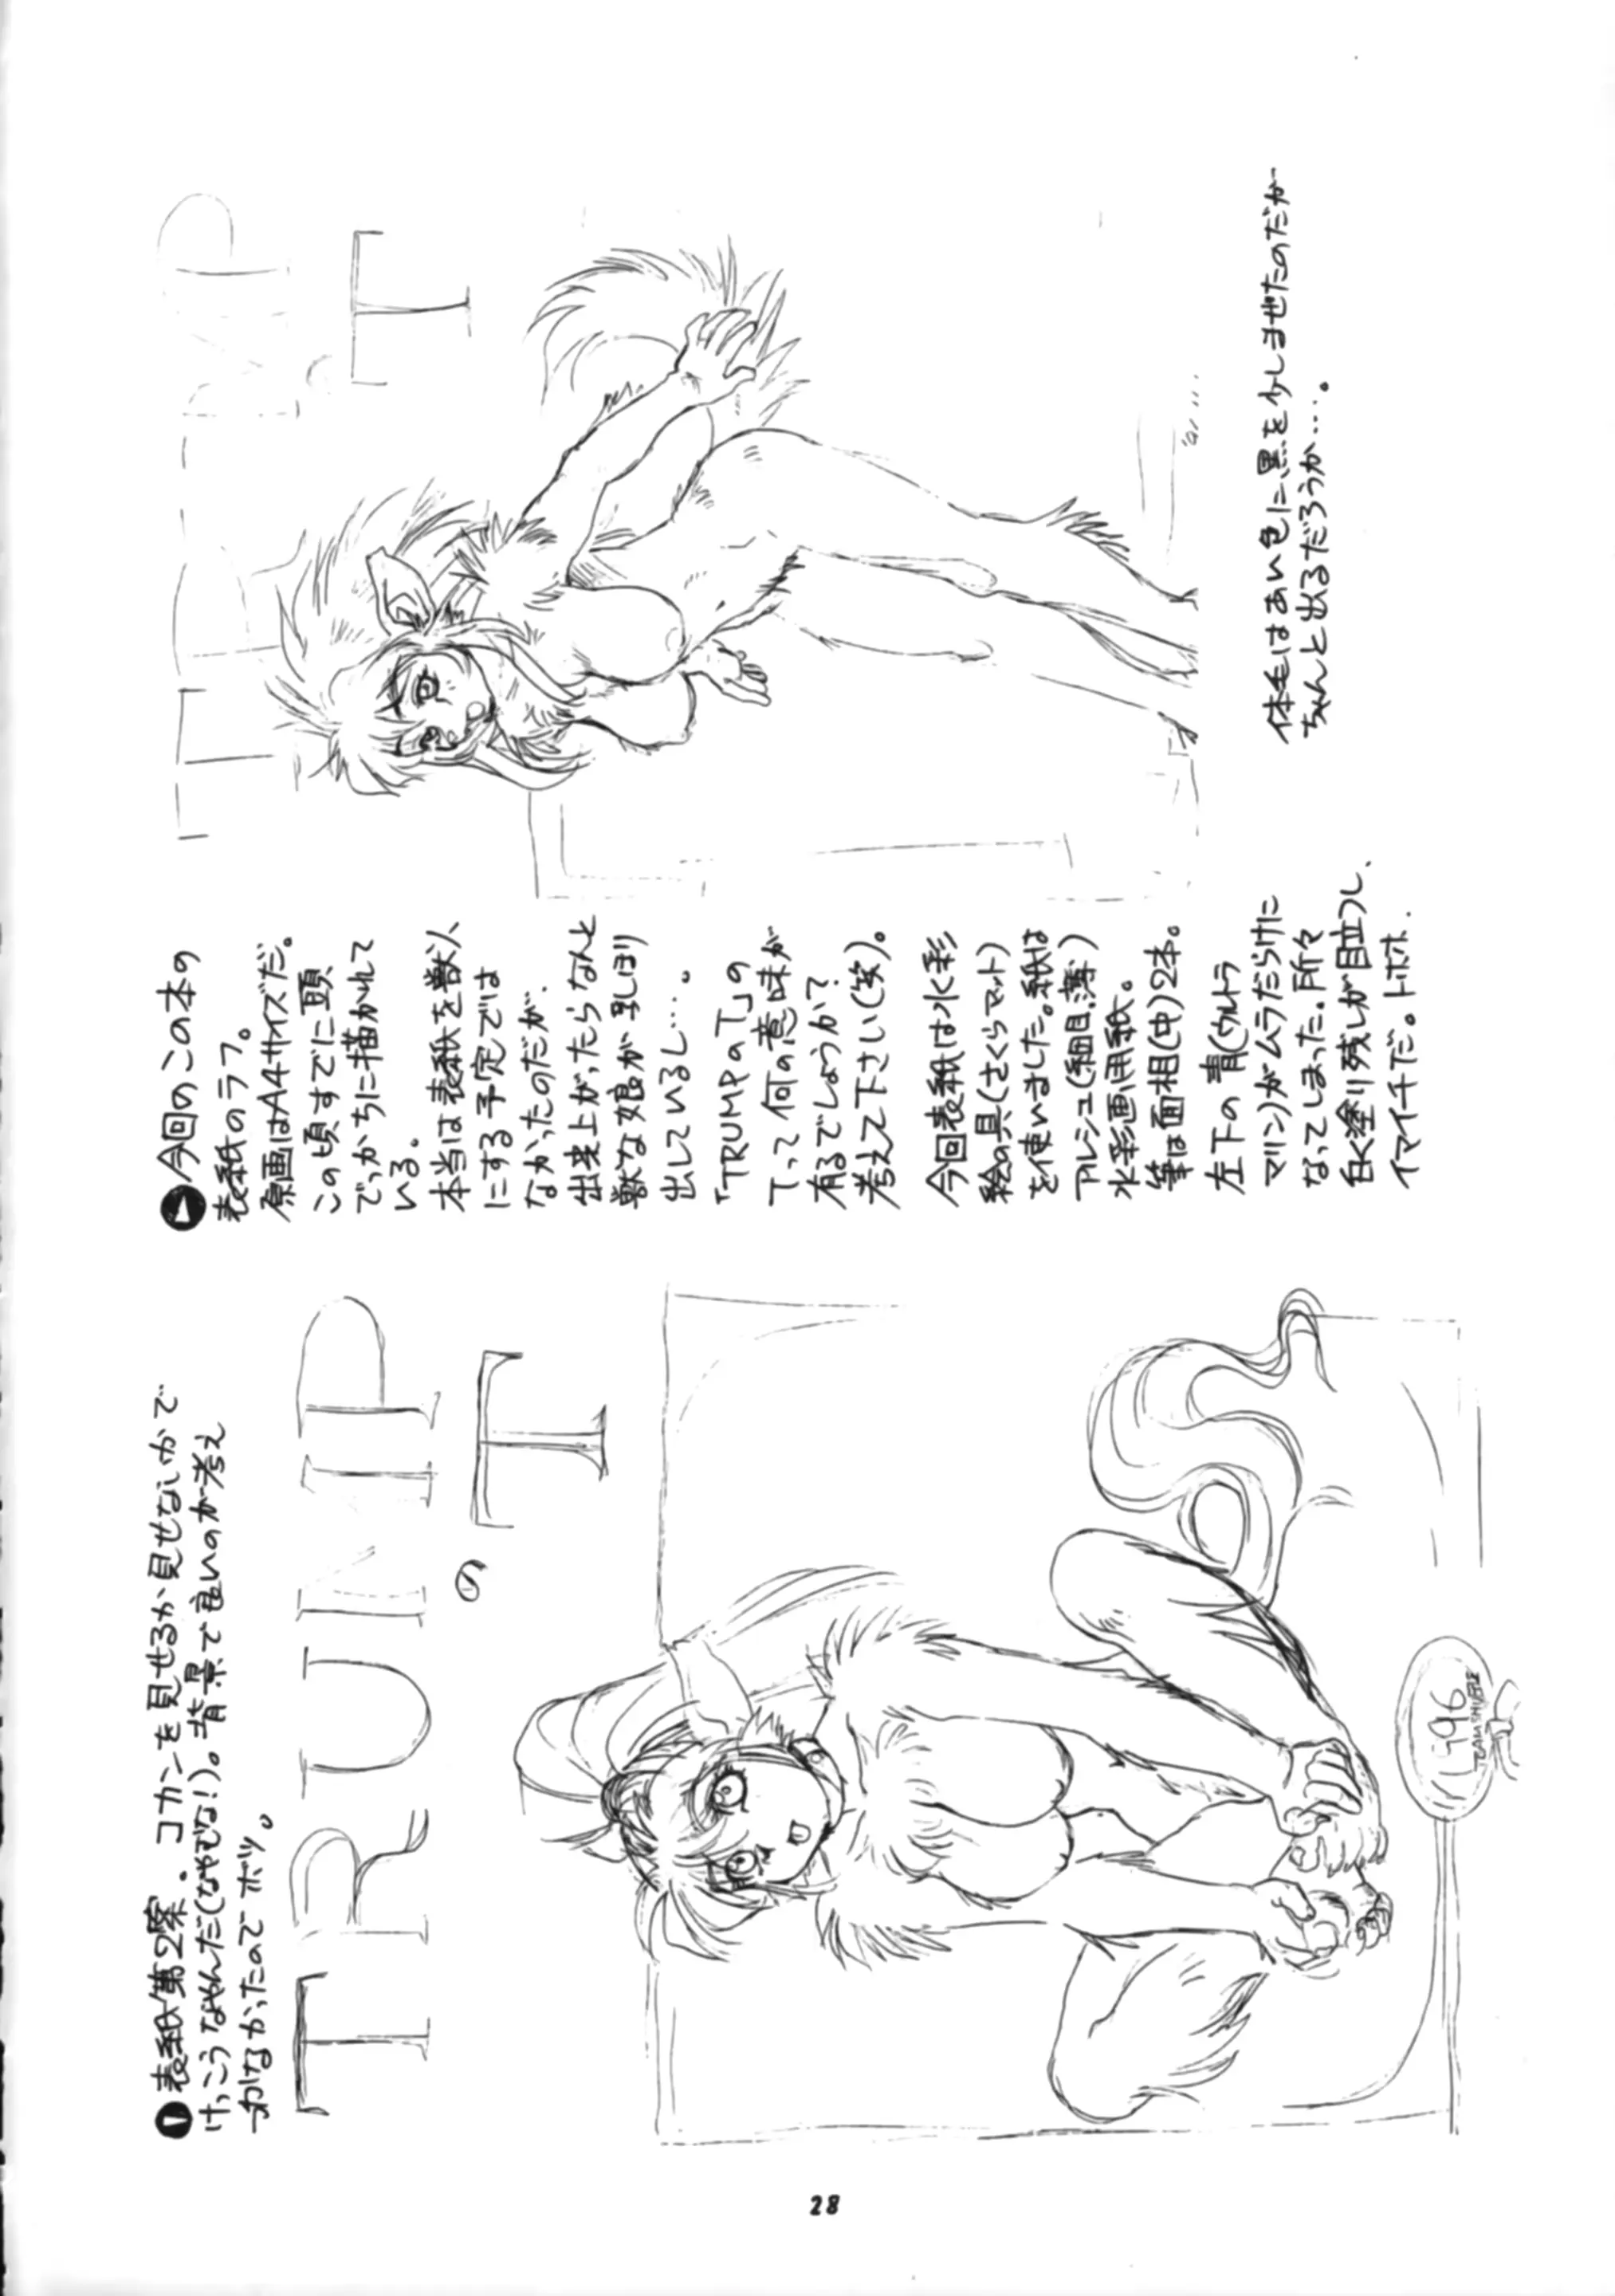 ❶表紙第2案。コカンを見せるか見せないかで
けっこうなやんだ(なやむな!)。背景で良いのが考え
つかなかったのでボツ。
TRUMP
の
T
1996
今回のこの本の
表紙のラフ。
原画はA4サイズだ。
この頃すでに頭
でっかちに描かれて
いる。
本当は表紙を獣人
にする予定では
なかったのだが、
出来上がったらなんと
獣な娘が乳ほり
出しているし…。
「TRUMPのT」の
Tって何の意味が
有るでしょうか?
考えて下さい(笑)。
今回表紙は水彩
絵の具(さくらマット)
を使いました。紙は
アルシュ(細目、薄)
水彩画用紙。
筆は面相(中)2本。
左下の青(ウルトラ
マリン)がムラだらけに
なってしまった。所々
白く塗り残しが目立つし、
イマイチだ。トホホ.
TRUMP
の
T
体毛はあい色に、黒を少しまぜたのだが
ちゃんと出るだろうか…。
28